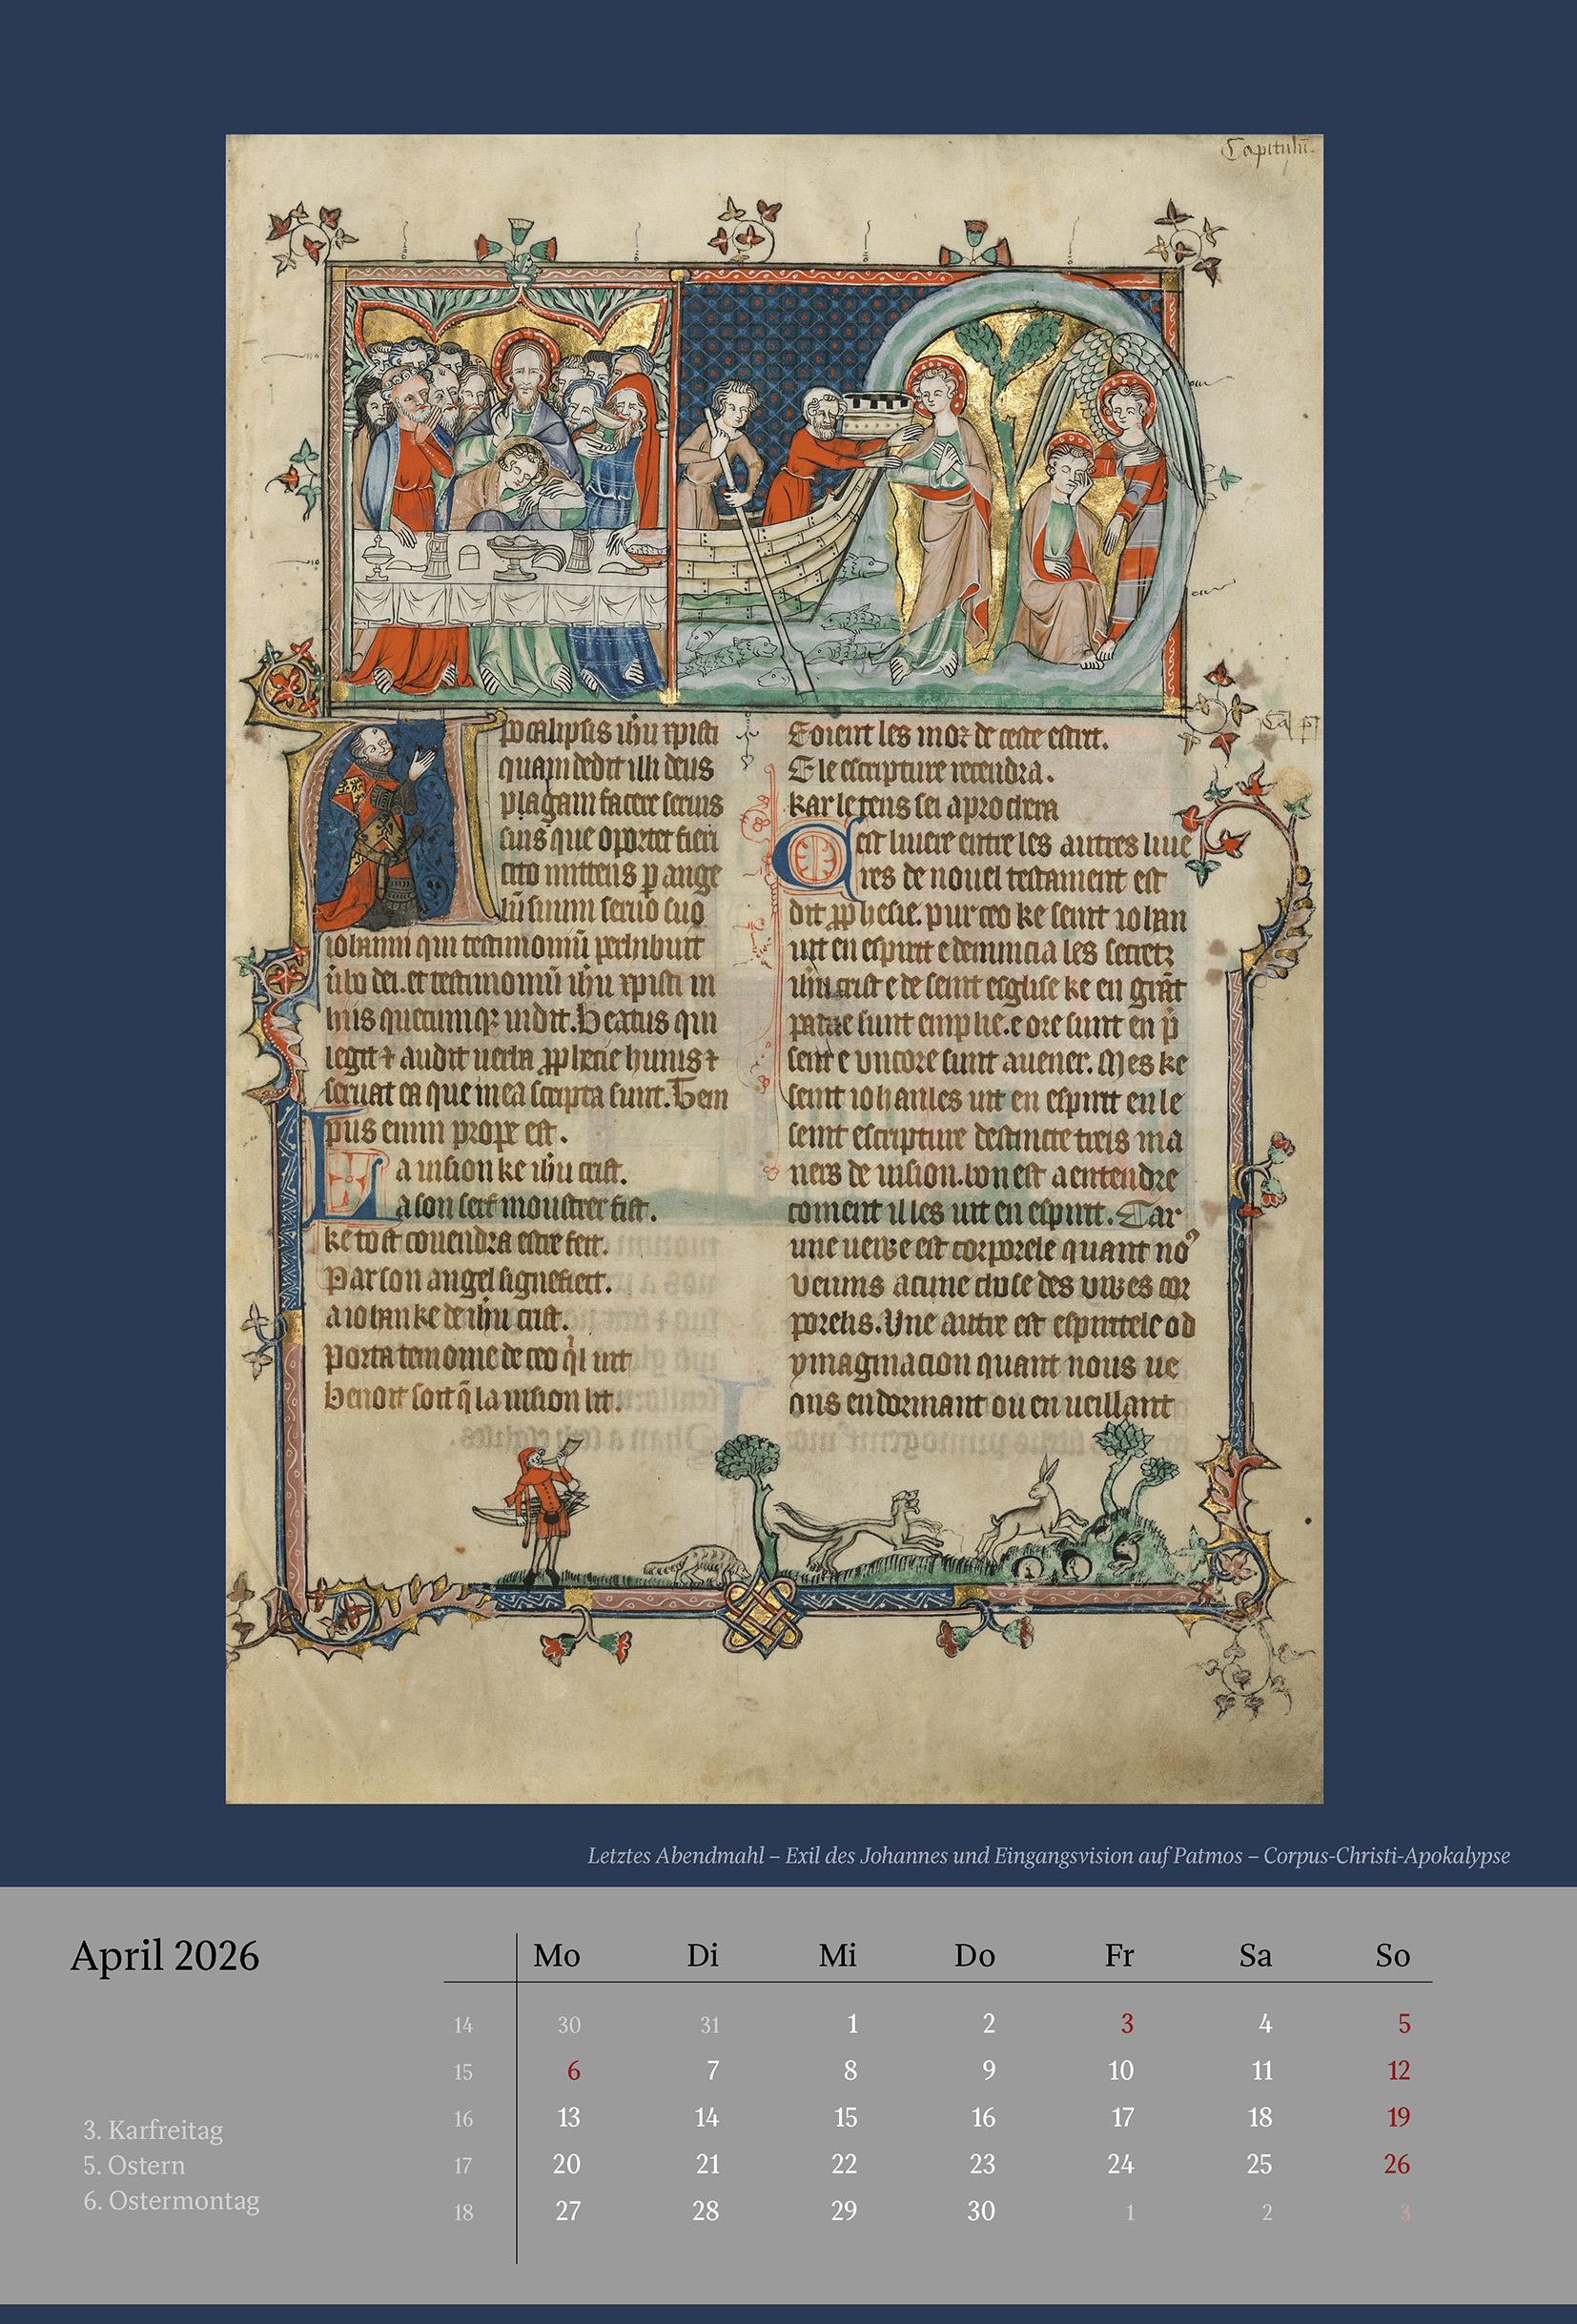 Capitulũ.
Apocalipsis ihu xpisti
quam dedit illi deus
palam facere seruis
suis que oportet fieri
cito mittens p ange
lũ suum seruo suo
iohanni qui testimoniũ perhibuit
ũbo dei. et testimoniũ ihu xpisti in
hiis quecumqꝫ uidit. Beatus qui
legit ⁊ audit uerba pphecie huius ⁊
seruat ea que in ea scripta sunt. Tem
pus enim prope est.
La uision ke ihu crist.
a son serf moustrer fist.
ke tost couendra estre fett.
Par son angel signefiett.
a iohan ke de ihu crist.
porta temoine de ceo qi uit
Benoit soit q̃ la uision lit.
E oient les moz de ceste escrit.
E le escripture retendra.
kar le tens sei aprochera
Cest liuere entre les autres liue
res de nouel testament est
dit pphesie. pur ceo ke seint iohan
uit en espirit e denuncia les secretz
ihu crist e de seint esglise ke en grãt
partie sunt emplie. e ore sunt en p̃
sent e uncore sunt auener. Mes ke
seint iohannes uit en espirit en le
seint escripture destincte treis ma
ners de uision. ion est a entendre
coment il les uit en espirit. Car
une ueue est corporele quant no⁹
veums acune chose des uues cor
porelis. Une autre est espiritele od
ymaginacion quant nous ue
ons en dormant ou en ueillant
Letztes Abendmahl – Exil des Johannes und Eingangsvision auf Patmos – Corpus-Christi-Apokalypse
April 2026
Mo Di Mi Do Fr Sa So
14 30 31 1 2 3 4 5
15 6 7 8 9 10 11 12
16 13 14 15 16 17 18 19
17 20 21 22 23 24 25 26
18 27 28 29 30 1 2 3
3. Karfreitag
5. Ostern
6. Ostermontag